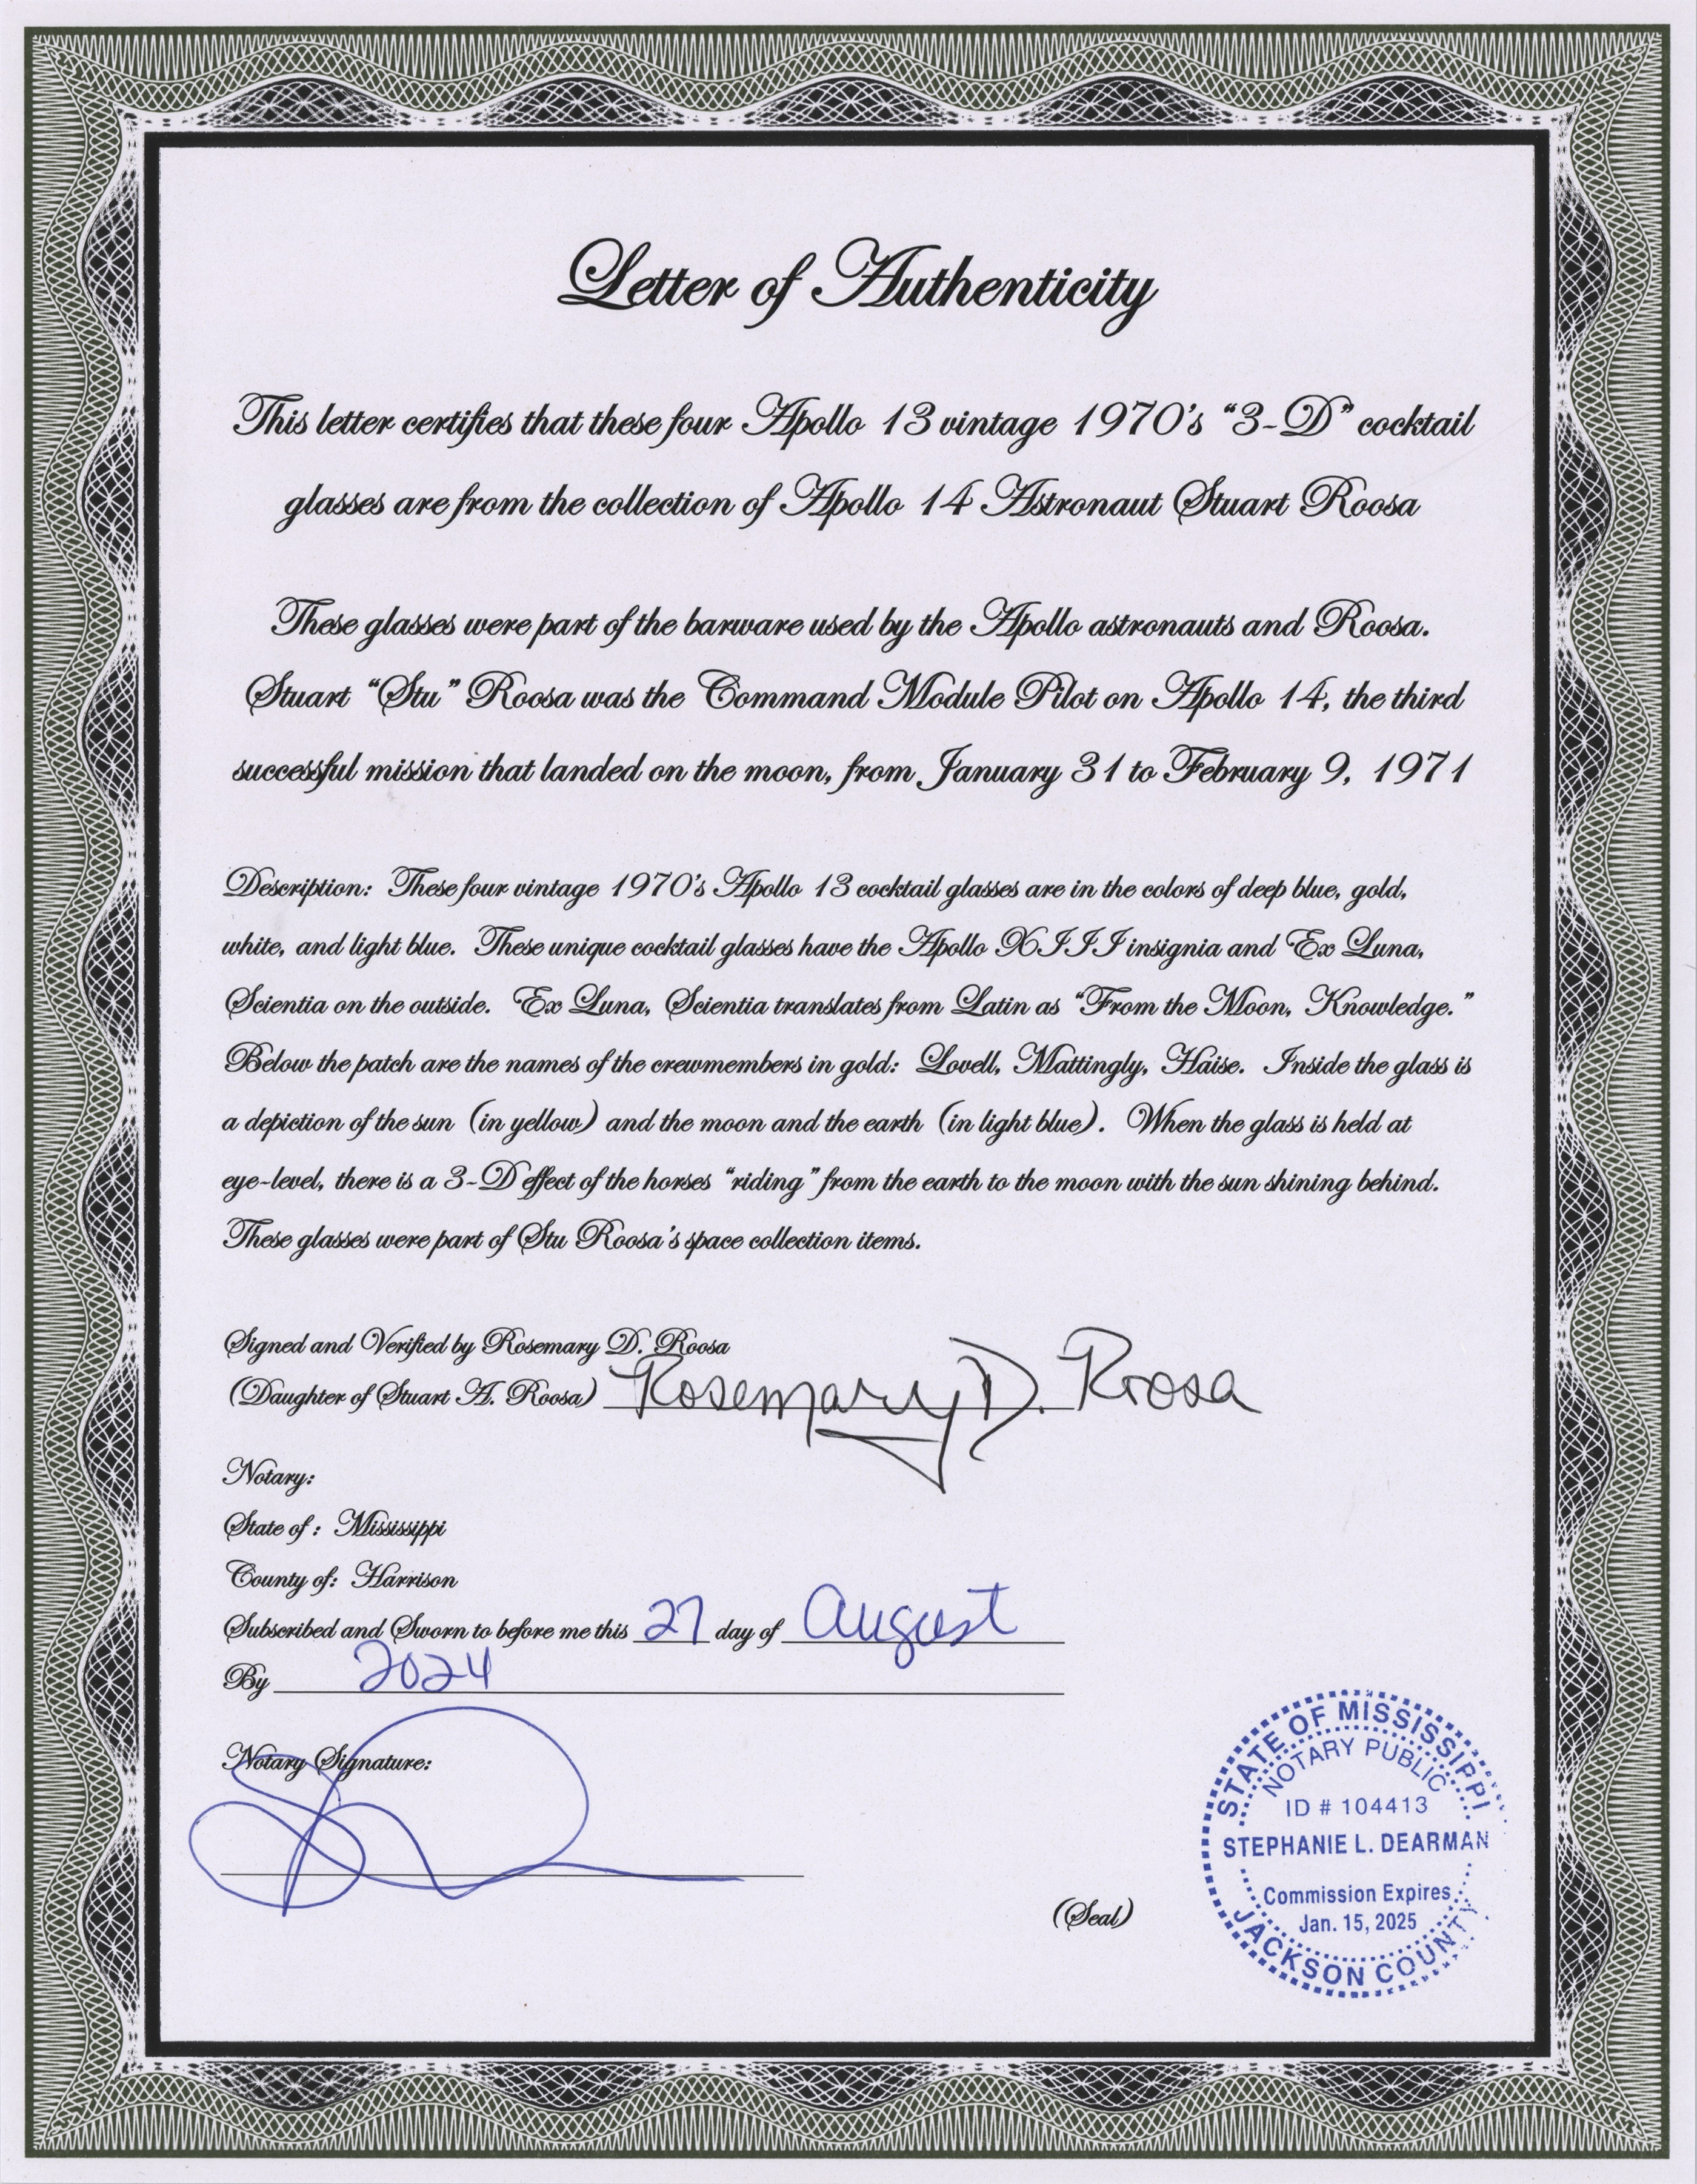 Letter of Authenticity
This letter certifies that these four Apollo 13 vintage 1970's “3-D” cocktail
glasses are from the collection of Apollo 14 Astronaut Stuart Roosa
These glasses were part of the barware used by the Apollo astronauts and Roosa.
Stuart “Stu” Roosa was the Command Module Pilot on Apollo 14, the third
successful mission that landed on the moon, from January 31 to February 9, 1971
Description: These four vintage 1970's Apollo 13 cocktail glasses are in the colors of deep blue, gold,
white, and light blue. These unique cocktail glasses have the Apollo XIII insignia and Ex Luna,
Scientia on the outside. Ex Luna, Scientia translates from Latin as “From the Moon, Knowledge.”
Below the patch are the names of the crewmembers in gold: Lovell, Mattingly, Haise. Inside the glass is
a depiction of the sun (in yellow) and the moon and the earth (in light blue). When the glass is held at
eye-level, there is a 3-D effect of the horses “riding” from the earth to the moon with the sun shining behind.
These glasses were part of Stu Roosa's space collection items.
Signed and Verified by Rosemary D. Roosa
(Daughter of Stuart A. Roosa) Rosemary D. Roosa
Notary:
State of : Mississippi
County of: Harrison
Subscribed and Sworn to before me this 27 day of August
By 2024
Notary Signature:
(Seal)
STATE OF MISSISSIPPI
NOTARY PUBLIC
ID # 104413
STEPHANIE L. DEARMAN
Commission Expires
Jan. 15, 2025
JACKSON COUNTY